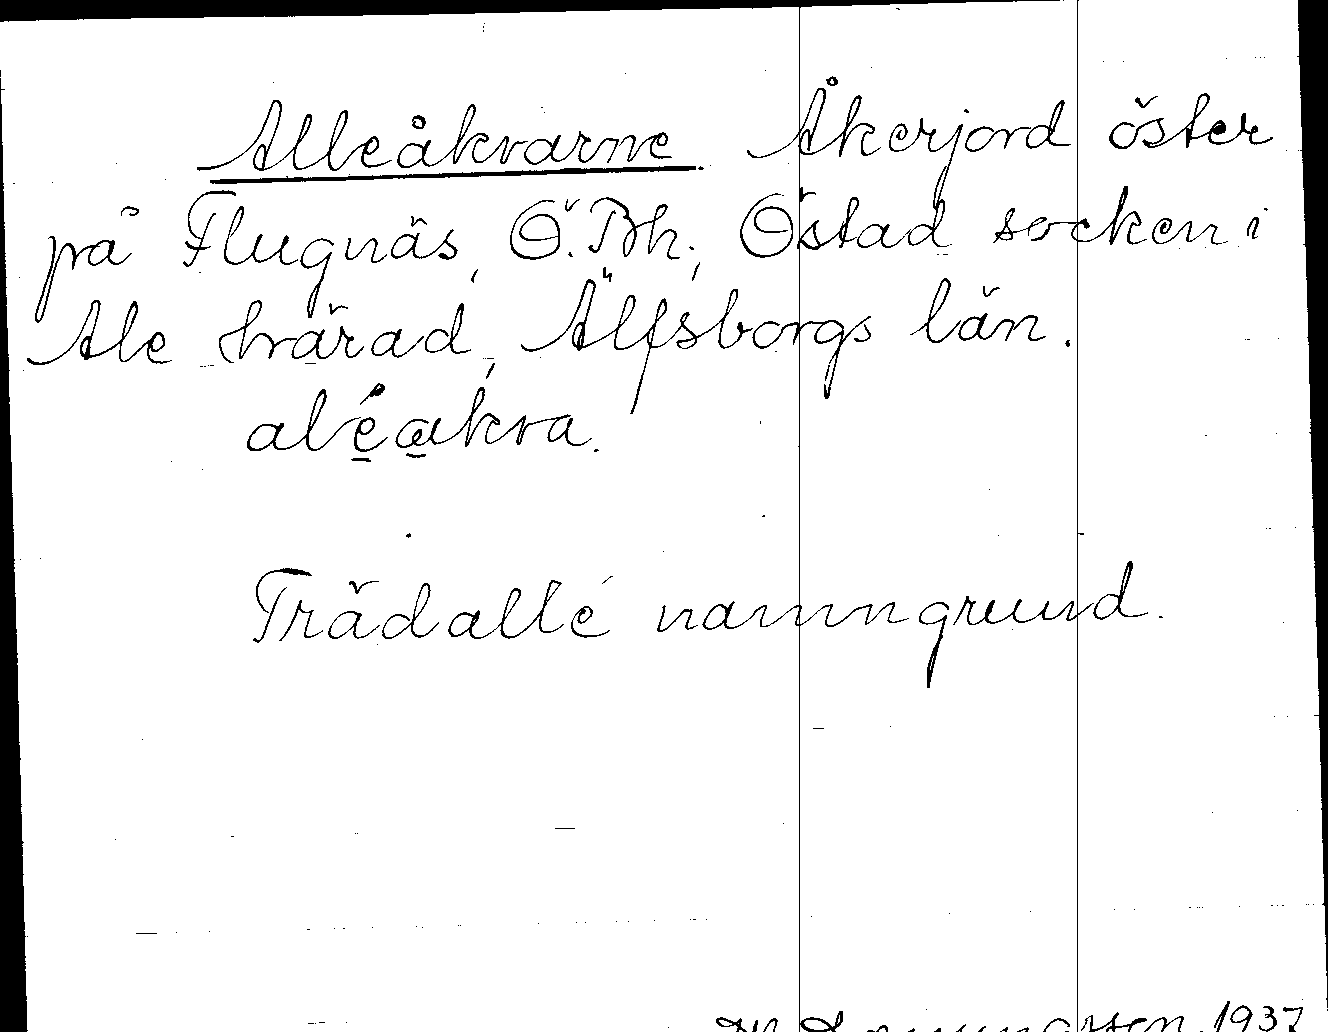 Alléåkrarne Åkerjord öster
på Flugnäs, Ö. Bh., Östad socken i
Ale härad, Älfsborgs län.
aléakra.
Trädallé namngrund.
1937